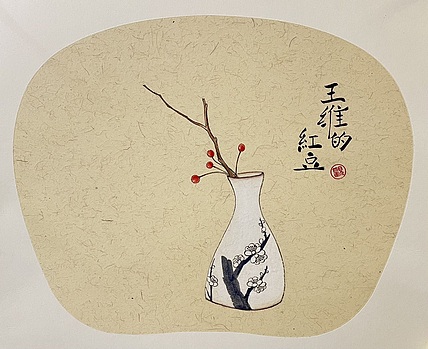 王维的
紅豆